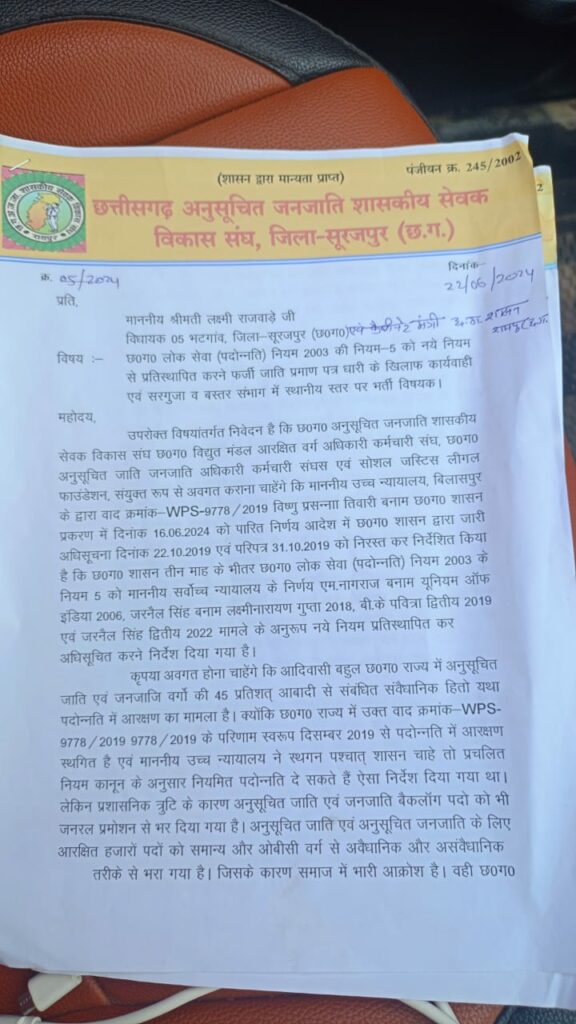 पंजीयन क्र. 245/2002
(शासन द्वारा मान्यता प्राप्त)
छत्तीसगढ़ अनुसूचित जनजाति शासकीय सेवक
विकास संघ, जिला-सूरजपुर (छ.ग.)
क्र. 05/2024
दिनांक-
22/06/2024
प्रति,
माननीय श्रीमती लक्ष्मी राजवाड़े जी
विधायक 05 भटगांव, जिला-सूरजपुर (छ०ग०) एवं कैबीनेट मंत्री छ.ग. शासन
विषय :- छ०ग० लोक सेवा (पदोन्नति) नियम 2003 की नियम-5 को नये नियम
से प्रतिस्थापित करने फर्जी जाति प्रमाण पत्र धारी के खिलाफ कार्यवाही
एवं सरगुजा व बस्तर संभाग में स्थानीय स्तर पर भर्ती विषयक।
महोदय,
उपरोक्त विषयांतर्गत निवेदन है कि छ०ग० अनुसूचित जनजाति शासकीय
सेवक विकास संघ छ०ग० विद्युत मंडल आरक्षित वर्ग अधिकारी कर्मचारी संघ, छ०ग०
अनुसूचित जाति जनजाति अधिकारी कर्मचारी संघस एवं सोशल जस्टिस लीगल
फाउंडेशन, संयुक्त रूप से अवगत कराना चाहेंगे कि माननीय उच्च न्यायालय, बिलासपुर
के द्वारा वाद क्रमांक-WPS-9778/2019 विष्णु प्रसन्नाा तिवारी बनाम छ०ग० शासन
प्रकरण में दिनांक 16.06.2024 को पारित निर्णय आदेश में छ०ग० शासन द्वारा जारी
अधिसूचना दिनांक 22.10.2019 एवं परिपत्र 31.10.2019 को निरस्त कर निर्देशित किया
है कि छ०ग० शासन तीन माह के भीतर छ०ग० लोक सेवा (पदोन्नति) नियम 2003 के
नियम 5 को माननीय सर्वोच्च न्यायालय के निर्णय एम.नागराज बनाम यूनियम ऑफ
इंडिया 2006, जरनैल सिंह बनाम लक्ष्मीनारायण गुप्ता 2018, बी.के पवित्रा द्वितीय 2019
एवं जरनैल सिंह द्वितीय 2022 मामले के अनुरूप नये नियम प्रतिस्थापित कर
अधिसूचित करने निर्देश दिया गया है।
कृपया अवगत होना चाहेंगे कि आदिवासी बहुल छ०ग० राज्य में अनुसूचित
जाति एवं जनजाजि वर्गो की 45 प्रतिशत् आबादी से संबंधित संवैधानिक हितो यथा
पदोन्नति में आरक्षण का मामला है। क्योंकि छ०ग० राज्य में उक्त वाद क्रमांक-WPS-
9778/2019 9778/2019 के परिणाम स्वरूप दिसम्बर 2019 से पदोन्नति में आरक्षण
स्थगित है एवं माननीय उच्च न्यायालय ने स्थगन पश्चात् शासन चाहे तो प्रचलित
नियम कानून के अनुसार नियमित पदोन्नति दे सकते हैं ऐसा निर्देश दिया गया था।
लेकिन प्रशासनिक त्रुटि के कारण अनुसूचित जाति एवं जनजाति बैकलॉग पदो को भी
जनरल प्रमोशन से भर दिया गया है। अनुसूचित जाति एवं अनुसूचित जनजाति के लिए
आरक्षित हजारों पदों को समान्य और ओबीसी वर्ग से अवैधानिक और असंवैधानिक
तरीके से भरा गया है। जिसके कारण समाज में भारी आक्रोश है। वही छ०ग०